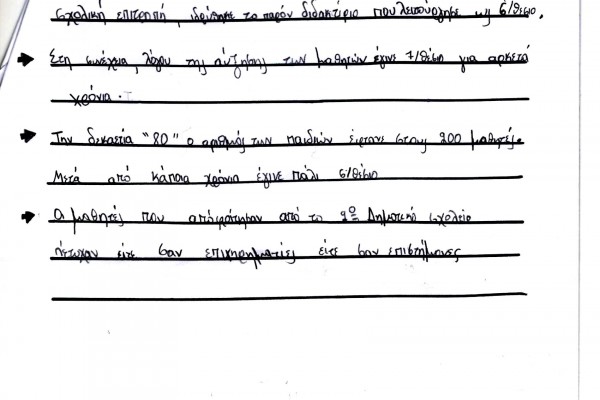 σχολική επιτροπή, ιδρύθηκε το παρόν διδακτήριο που λειτούργησε ως 6/θέσιο.
Στη συνέχεια, λόγου της αύξησης των μαθητών έγινε 7/θέσιο για αρκετά
χρόνια.
Την δεκαετία "80" ο αριθμός των παιδιών έφτανε στους 200 μαθητές.
Μετά από κάποια χρόνια έγινε πάλι 6/θέσιο
Οι μαθητές που αποφοίτησαν από το 2º Δημοτικό σχολείο
πέτυχαν είτε σαν επιχειρηματίες είτε σαν επιστήμονες